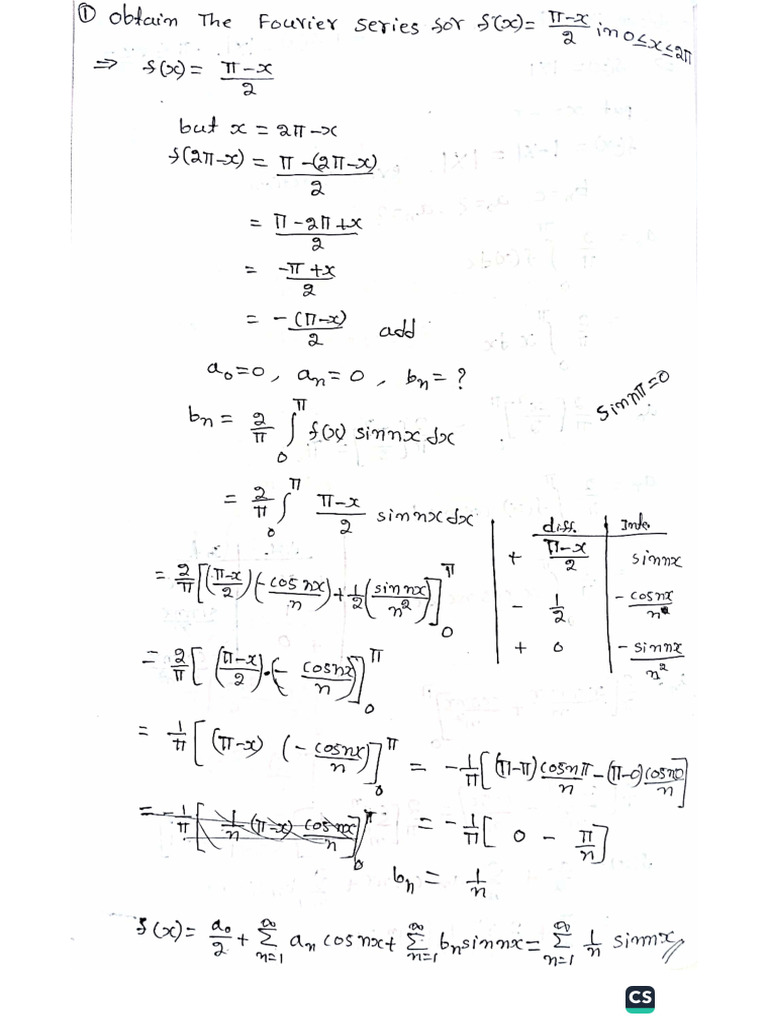 ① Obtain The Fourier series for f(x) = π-x/2 in 0≤x≤2π
⇒ f(x) = π-x/2
but x = 2π-x
f(2π-x) = π-(2π-x)/2
= π-2π+x/2
= -π+x/2
= -(π-x)/2 add
a₀=0, aₙ=0, bₙ=?
sinnπ=0
bₙ = 2/π ∫₀^π f(x) sinnx dx
= 2/π ∫₀^π π-x/2 sinnx dx
diff. Inte.
+ π-x/2 sinnx
- 1/2 -cosnx/n
+ 0 -sinnx/n²
= 2/π [(π-x/2)(-cos nx/n)+1/2(sinnx/n²)]₀^π
= 2/π [(π-x/2)·(-cosnx/n)]₀^π
= 1/π [(π-x) (-cosnx/n)]₀^π = -1/π [(π-π)cosnπ/n-(π-0)cosn0/n]
= -1/π [1/n (π-x) cosnx/n]₀^π = -1/π [0 - π/n]
bₙ = 1/n
f(x) = a₀/2 + ∞Σn=1 aₙ cosnx + ∞Σn=1 bₙ sinnx = ∞Σn=1 1/n sinnx //
CS